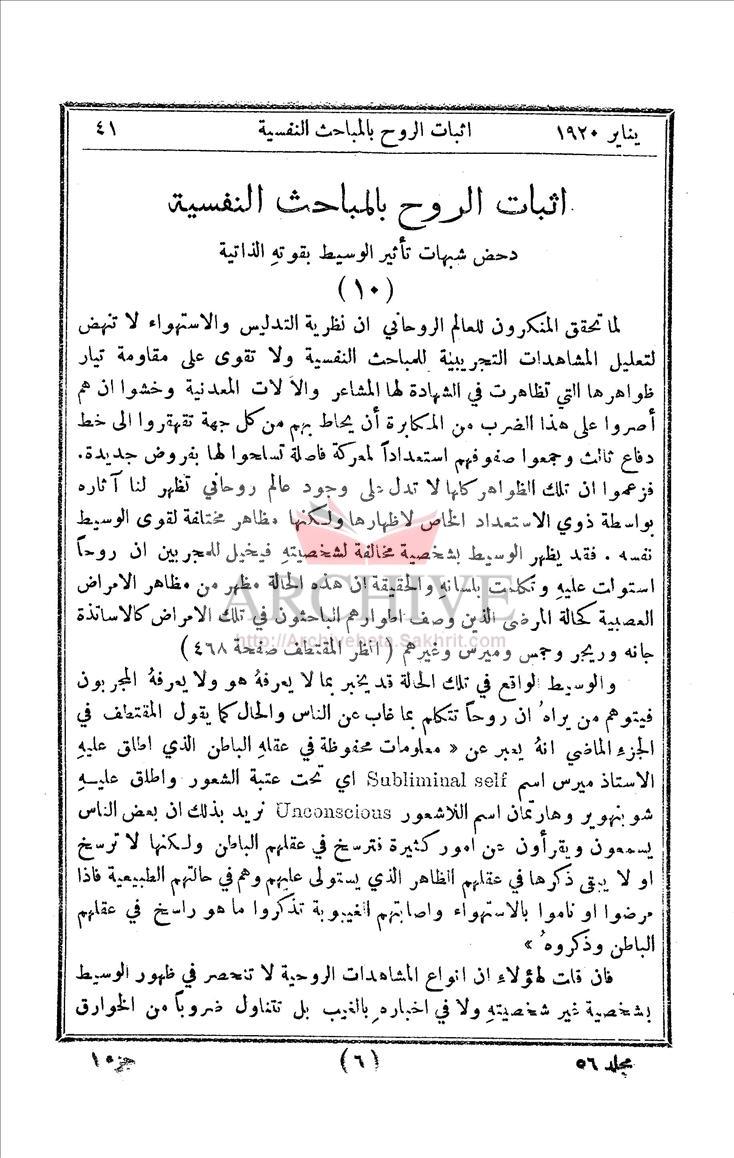 يناير ١٩٢٠ اثبات الروح بالمباحث النفسية ٤١
اثبات الروح بالمباحث النفسية
دحض شبهات تأثير الوسيط بقوتهِ الذاتية
(١٠)
لما تحقق المنكرون للعالم الروحاني ان نظرية التدليس والاستهواء لا تنهض
لتعليل المشاهدات التجريبية للمباحث النفسية ولا تقوى على مقاومة تيار
ظواهرها التي تظاهرت في الشهادة لها المشاعر والآلات المعدنية وخشوا ان هم
أصروا على هذا الضرب من المكابرة أن يحاط بهم من كل جهة تقهقروا الى خط
دفاع ثالث وجمعوا صفوفهم استعداداً لمعركة فاصلة تسلحوا لها بفروض جديدة.
فزعموا ان تلك الظواهر كلها لا تدل على وجود عالم روحاني تظهر لنا آثاره
بواسطة ذوي الاستعداد الخاص لاظهارها ولكنها مظاهر مختلفة لقوى الوسيط
نفسه . فقد يظهر الوسيط بشخصية مخالفة لشخصيتهِ فيخيل للمجربين ان روحاً
استولت عليهِ وتكلمت بلسانهِ والحقيقة ان هذه الحالة مظهر من مظاهر الامراض
العصبية كحالة المرضى الذين وصف اطوارهم الباحثون في تلك الامراض كالاساتذة
جانه وريجر وجمس وميرس وغيرهم ( انظر المقتطف صفحة ٤٦٨ )
والوسيط الواقع في تلك الحالة قد يخبر بما لا يعرفهُ هو ولا يعرفهُ المجربون
فيتوهم من يراهُ ان روحاً تتكلم بما غاب عن الناس والحال كما يقول المقتطف في
الجزء الماضي انهُ يعبر عن « معلومات محفوظة في عقلهِ الباطن الذي اطلق عليهِ
الاستاذ ميرس اسم Subliminal self اي تحت عتبة الشعور واطلق عليهِ
شوبنهوير وهارتمان اسم اللاشعور Unconscious نريد بذلك ان بعض الناس
يسمعون ويقرأون عن امور كثيرة فترسخ في عقلهم الباطن ولكنها لا ترسخ
او لا يبقى ذكرها في عقلهم الظاهر الذي يستولي عليهم وهم في حالتهم الطبيعية فاذا
مرضوا او ناموا بالاستهواء واصابتهم الغيبوبة تذكروا ما هو راسخ في عقلهم
الباطن وذكروهُ »
فان قلت لهؤلاء ان انواع المشاهدات الروحية لا تنحصر في ظهور الوسيط
بشخصية غير شخصيتهِ ولا في اخبارهِ بالغيب بل تتناول ضروباً من الخوارق
مجلد ٥٦ (٦) جزء ١
ARCHIVE
http://Archivebeta.Sakhrit.com